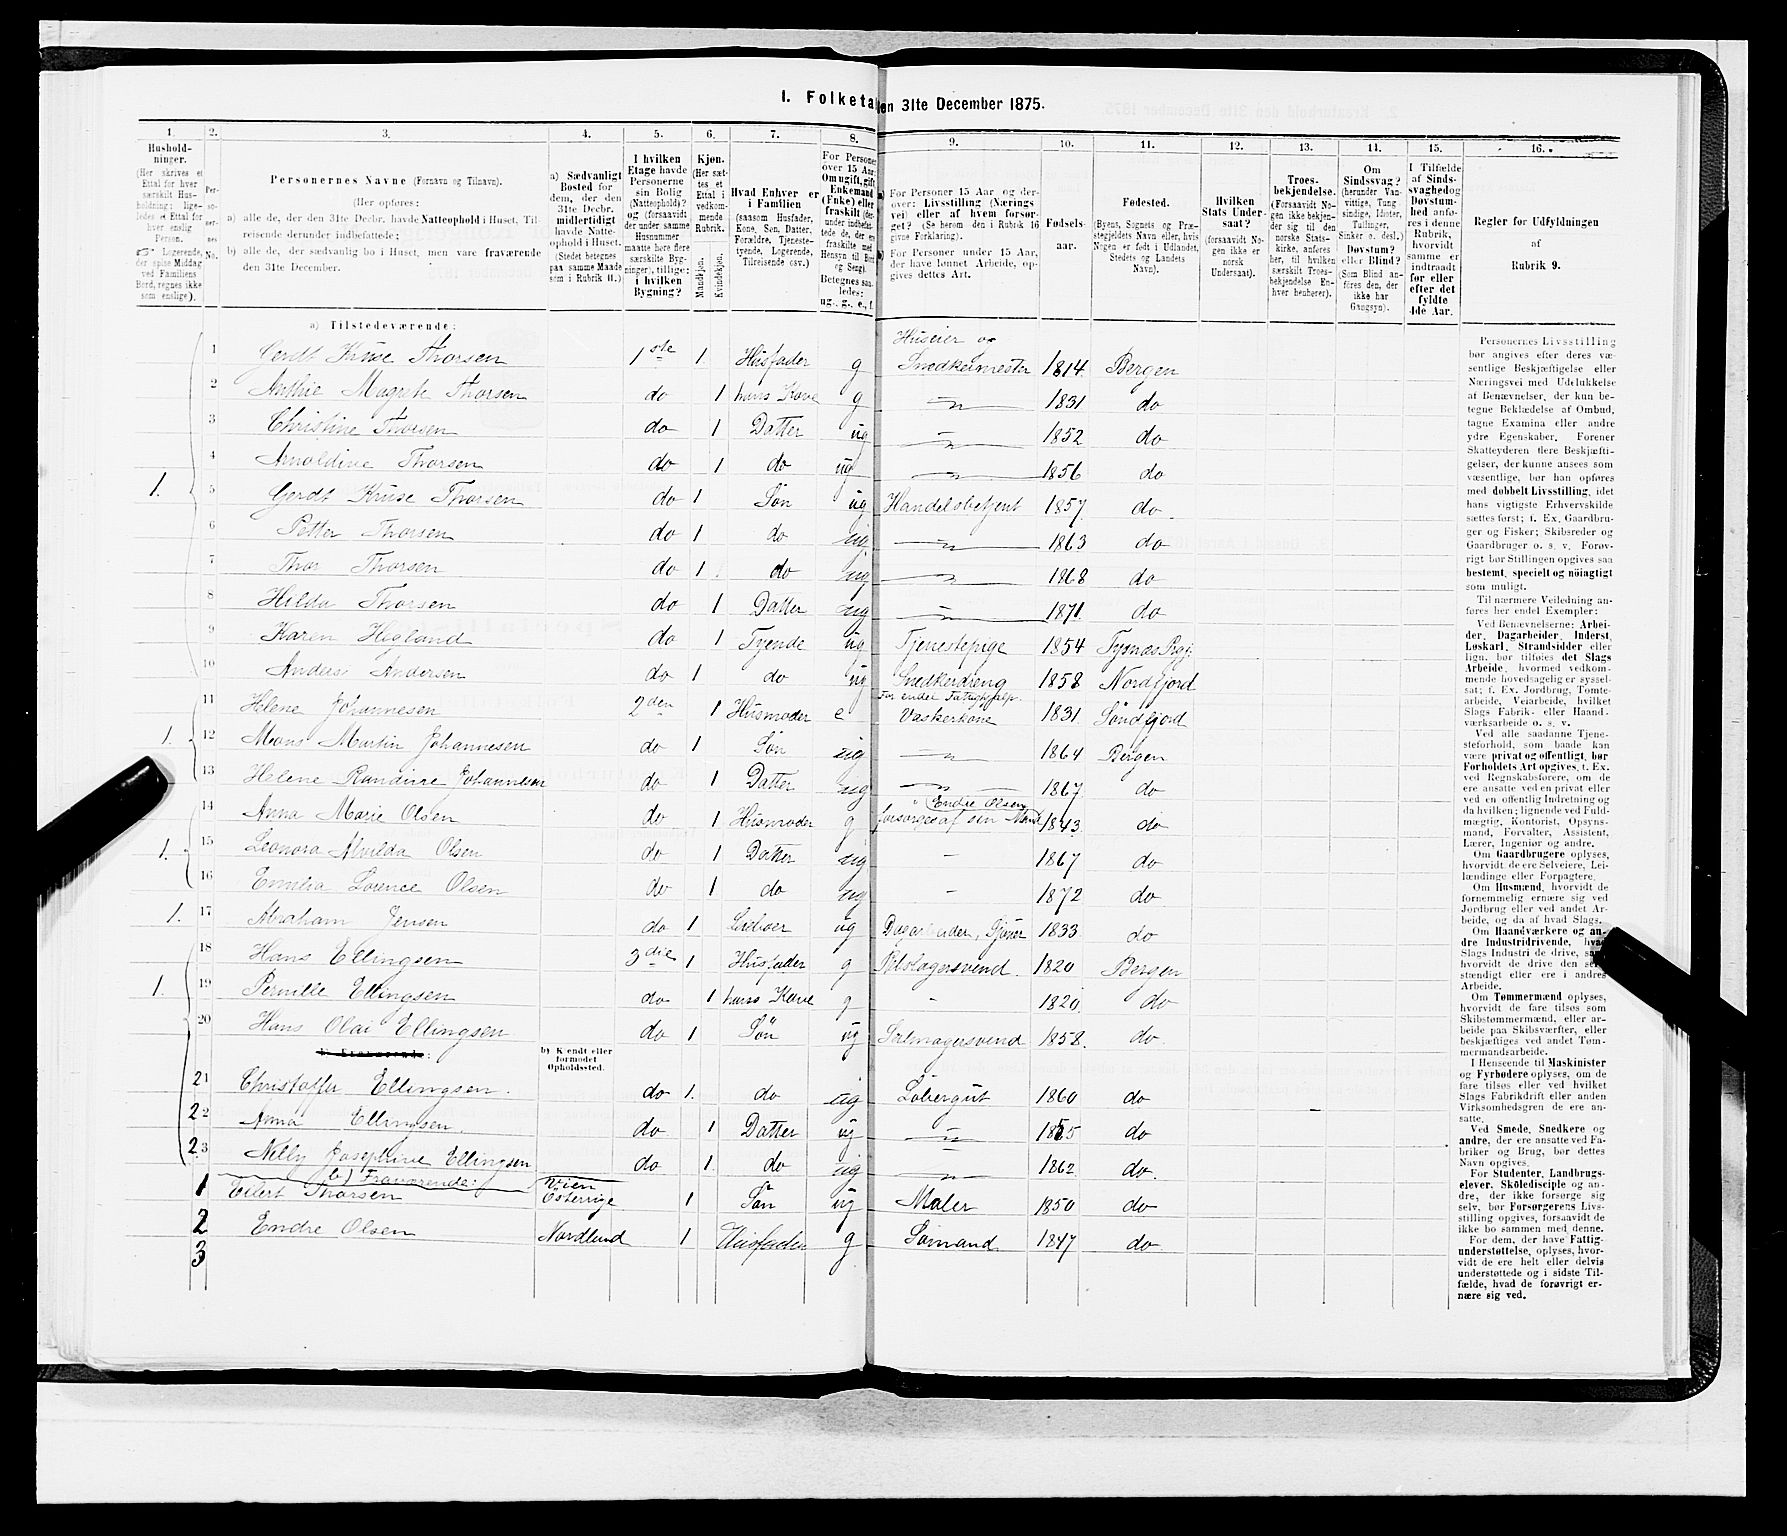 1. Folketal den 31te December 1875.
1. 2. 3. 4. 5. 6. 7. 8. 9. 10. 11. 12. 13. 14. 15. 16.
Husholdninger. (Her skrives et Ettal for hver særskilt Husholdning; ligeledes et Ettal for hver enslig Person. Logerende, der spise Middag ved Familiens Bord, regnes ikke som enslige).
Personernes No.
Personernes Navne (Fornavn og Tilnavn).
(Her opføres:
a) alle de, der den 31te Decbr. havde Natteophold i Huset, Tilreisende derunder indbefattede;
b) alle de, der sædvanlig bo i Huset, men vare fraværende den 31te December.
a) Sædvanligt Bosted for dem, der den 31te Decbr. midlertidigt havde Natteophold i Huset. (Stedet betegnes paa samme Maade som i Rubrik 11.)
I hvilken Etage havde Personerne sin Bolig (Natteophold)? og (forsaavidt der under samme Husnummer maatte høre flere særskilte Bygninger), tillige: i hvilken Bygning?
Kjøn. (Her sættes et Ettal i vedkommende Rubrik. Mandkjøn. Kvindekjøn.
Hvad Enhver er i Familien (saasom Husfader, Kone, Søn, Datter, Forældre, Tjenestetyende, Logerende, Tilreisende osv.)
For Personer over 15 Aar: Om ugift, gift, Enkemand (Enke) eller fraskilt (derunder indbefattede de, der ere fraskilte med Hensyn til Bord og Seng). Betegnes saaledes: ug., g., e., f.
For Personer 15 Aar og derover: Livsstilling (Næringsvei) eller af hvem forsørget? (Se herom den i Rubrik 16 givne Forklaring).
For Personer under 15 Aar, der have lønnet Arbeide, opgives dettes Art.
Fødselsaar.
Fødested. (Byens, Sognets og Præstegjeldets Navn eller, hvis Nogen er født i Udlandet, Stedets og Landets Navn).
Hvilken Stats Undersaat? (forsaavidt Nogen ikke er norsk Undersaat).
Troesbekjendelse. (Forsaavidt Nogen ikke bekjender sig til den norske Statskirke, anføres her, til hvilken særskilt Troesbekjendelse Enhver henhører).
Om Sindssvag? (herunder Vanvittige, Tungsindige, Idioter, Tullinger, Sinker o. desl.) Døvstum? eller Blind? (Som Blind anføres den, der ikke har Gangsyn).
I Tilfælde af Sindssvaghed og Døvstumhed anføres i denne Rubrik, hvorvidt samme er indtraadt før eller efter det fyldte 4de Aar.
Regler for Udfyldningen af Rubrik 9.
a) Tilstedeværende:
1 Gerdt Kruse Thorsen 1ste 1 Husfader g Huseier og Snedkermester 1814 Bergen
2 Anthie Magrete Thorsen do 1 hans Kone g 1831 do
3 Christine Thorsen do 1 Datter ug 1852 do
4 Arnoldine Thorsen do 1 do ug 1856 do
1. 5 Gerdt Kruse Thorsen do 1 Søn ug Handelsbetjent 1857 do
6 Petter Thorsen do 1 do ug 1863 do
7 Thor Thorsen do 1 do ug 1868 do
8 Hilda Thorsen do 1 Datter ug 1871 do
9 Karen Higland do 1 Tyende ug Tjenestepige 1854 Tysnæs Prgj.
10 Anders Andersen do 1 do ug Snedkerdreng 1858 Nordfjord
11 Helene Johannesen 2den 1 Husmoder e For endel Fattighjælp. Vaskerkone 1831 Søndfjord
1. 12 Mons Martin Johannesen do 1 Søn ug 1864 Bergen
13 Helene Randine Johannesen do 1 Datter ug 1867 do
14 Anna Marie Olsen do 1 Husmoder g forsørges af sin Mand Endre Olsen 1843 do
1. 15 Leonora Alvilda Olsen do 1 Datter ug - 1867 do
16 Emilia Lorence Olsen do 1 do ug - 1872 do
1. 17 Abraham Jensen do 1 ug Dagarbeider, 1833 do
18 Hans Ellingsen 3die 1 Husfader g 1820 Bergen
1. 19 Pernille Ellingsen do 1 hans Kone g - 1820 do
20 Hans Olai Ellingsen do 1 Søn ug Salmagersvend 1858 do
b) Fraværende: b) Kjendt eller formodet Opholdssted.
21 Christoffer Ellingsen do 1 do ug Løbergut 1860 do
22 Anna Ellingsen do 1 Datter ug 1855 do
23 Nelly Josephine Ellingsen do 1 do ug 1862 do
b) Fraværende:
1 Eilert Thorsen Wien Østerrige 1 Søn ug Maler 1850 do
2 Endre Olsen Nordland 1 Husfader g Sømand 1847 do
3
Personernes Livsstilling bør angives efter deres væsentlige Beskjæftigelse eller Næringsvei med Udelukkelse af Benævnelser, der kun betegne Beklædelse af Ombud, tagne Examina eller andre ydre Egenskaber. Forener Skatteyderen flere Beskjæftigelser, der kunne ansees som væsentlige, bør han opføres med dobbelt Livsstilling, idet hans vigtigste Erhvervskilde sættes først; f. Ex. Gaardbruger og Fisker; Skibsreder og Gaardbruger o. s. v. Forøvrigt bør Stillingen opgives saa bestemt, specielt og nøiagtigt som muligt.
Til nærmere Veiledning anføres her endel Exempler:
Ved Benævnelserne: Arbeider, Dagarbeider, Inderst, Løskarl, Strandsidder eller lign. bør tilføies det Slags Arbeide, hvormed vedkommende hovedsagelig er sysselsat; f. Ex. Jordbrug, Tomtearbeide, Veiarbeide, hvilket Slags Fabrik- eller Haandværksarbeide o. s. v.
Ved alle saadanne Tjenesteforhold, som baade kan være privat og offentligt, bør Forholdets Art opgives, f. Ex. ved Regnskabsførere, om de ere ansatte ved en privat eller ved en offentlig Indretning og da hvilken; lignende ved Fuldmægtig, Kontorist, Opsynsmand, Forvalter, Assistent, Lærer, Ingeniør og andre.
Om Gaardbrugere oplyses, hvorvidt de ere Selveiere, Leilændinge eller Forpagtere.
Om Husmænd, hvorvidt de fornemmelig ernære sig ved Jordbrug eller ved andet Arbeide, og da af hvad Slags.
Om Haandværkere og andre Industridrivende, hvad Slags Industri de drive, samt hvorvidt de drive den selvstændigt eller ere i andres Arbeide.
Om Tømmermænd oplyses, hvorvidt de fare tilsøs som Skibstømmermænd, eller arbeide paa Skibsværfter, eller beskjæftiges ved andet Tømmermandsarbeide.
I Henseende til Maskinister og Fyrbødere oplyses, om de fare tilsøs eller ved hvilket Slags Fabrikdrift eller anden Virksomhedsgren de ere ansatte.
Ved Smede, Snedkere og andre, der ere ansatte ved Fabriker og Brug, bør dettes Navn opgives.
For Studenter, Landbrugselever, Skoledisciple og andre, der ikke forsørge sig selv, bør Forsørgerens Livsstilling opgives, forsaavidt de ikke bo sammen med denne.
For dem, der have Fattigunderstøttelse, oplyses, hvorvidt de ere helt eller delvis understøttede og i sidste Tilfælde, hvad de forøvrigt ernære sig ved.